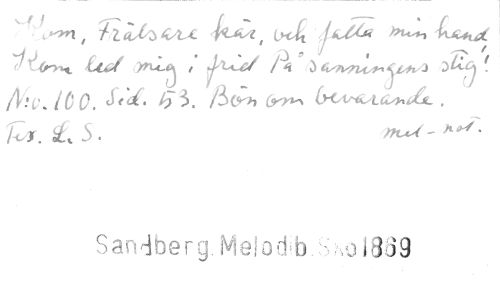 Kom, Frälsare kär, och fatta min hand,
Kom led mig i frid På sanningens stig!
N:o. 100. Sid. 53. Bön om bevarande.
Tex. L. S. mel-not.
Sandberg. Melodib. Sko 1869